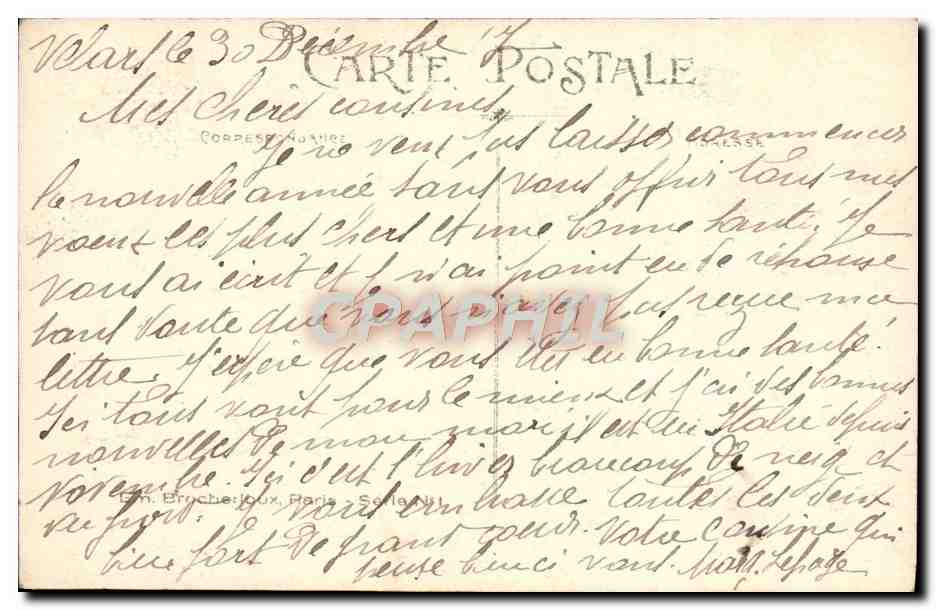 le 30 Décembre 17
CARTE POSTALE
Mes chères cousines
CORRESPONDANCE ADRESSE
Je ne veux pas laisser commencer
la nouvelle année sans vous offrir tous mes
voeux les plus chers et une bonne santé, Je
vous ai écrit et je n'ai point eu de réponse
sans doute que vous n'avez pas reçue ma
CPAPHIL
lettre. J'espère que vous êtes en bonne santé.
Ici tous vont pour le mieux et j'ai des bonnes
nouvelles de mon mari il est en Italie depuis
Novembre. Ici c'est l'hiver beaucoup de neige et
Em. Brocherioux, Paris - Série
froid. Je vous embrasse toutes les deux
bien fort de grand coeur. Votre cousine qui
pense bien ci vous. Lepage